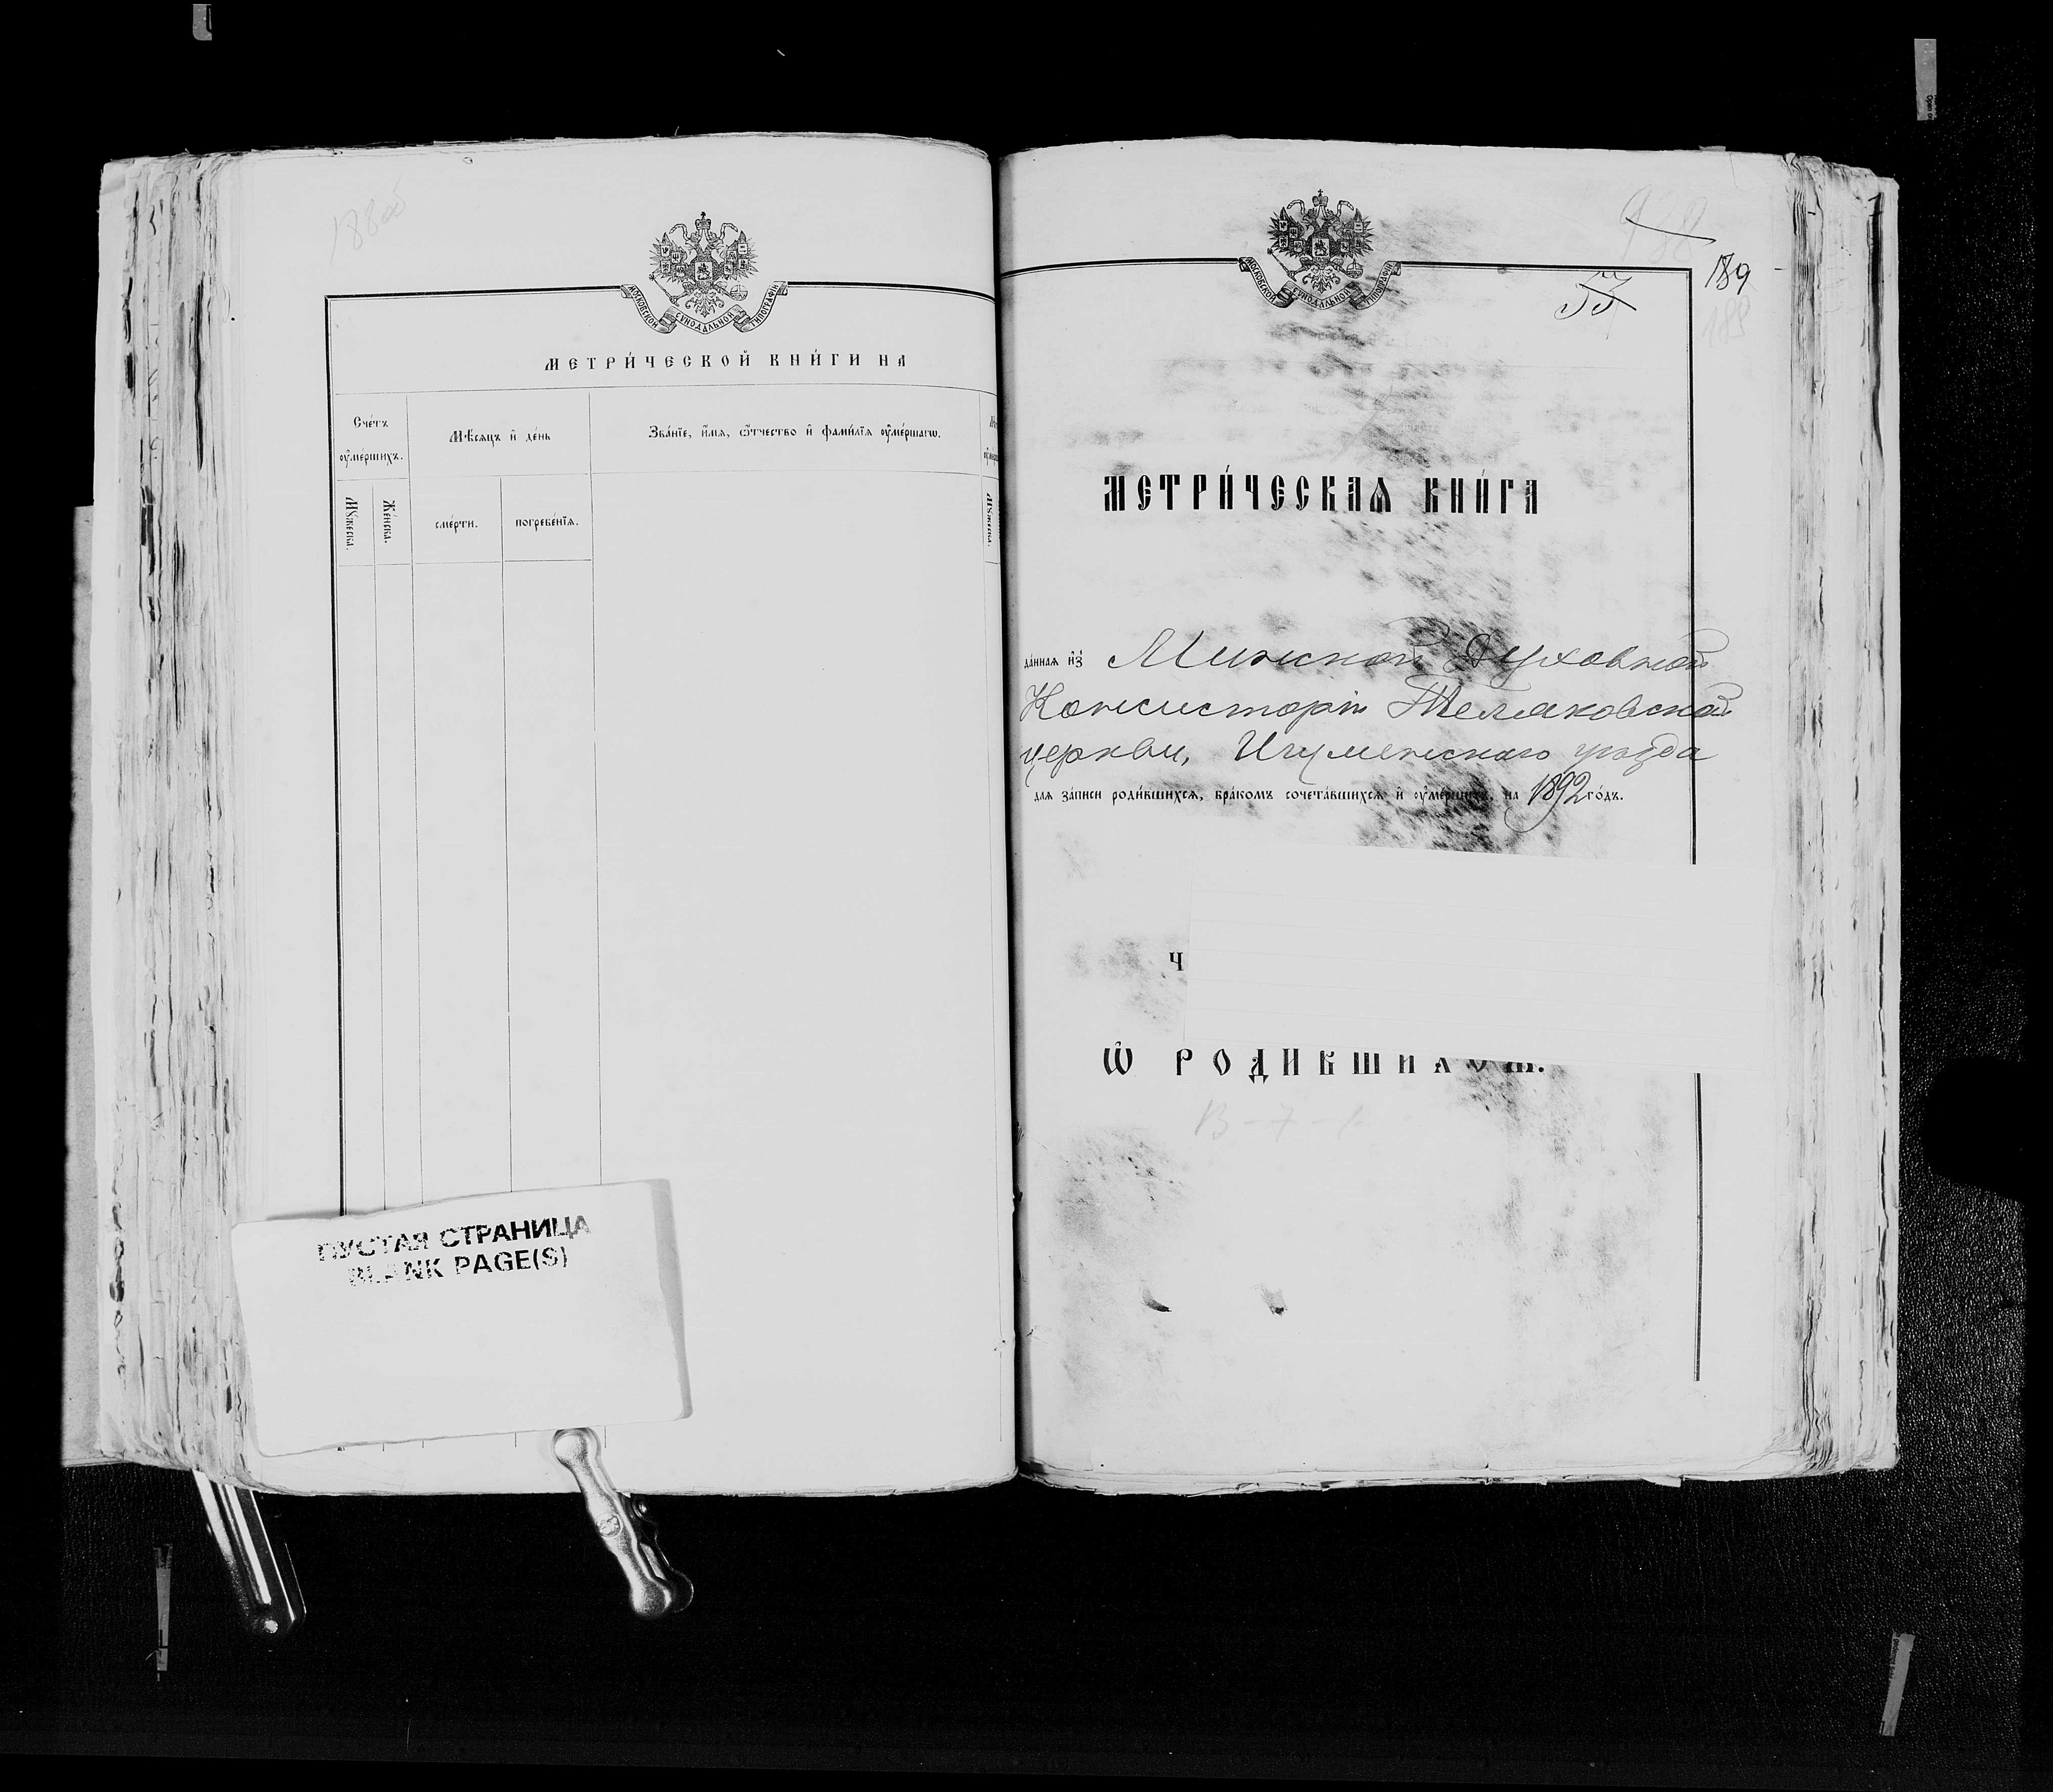 188об
МОСКОВСКОЙ СУНОДАЛЬНОЙ ТИПОГРАФІИ
МЕТРИ́ЧЕСКОЙ КНИ́ГИ НА
Сче́тъ ᲂу҆ме́ршихъ.
Мѣ́сяцъ и҆ де́нь
Зва́нїе, и҆́мѧ, ѻ҆́тчество и҆ фами́лїѧ ᲂу҆ме́ршагѡ.
Мꙋ́жеска.
Же́нска.
сме́рти.
погребе́нїѧ.
ПУСТАЯ СТРАНИЦА
BLANK PAGE(S)
МОСКОВСКОЙ СУНОДАЛЬНОЙ ТИПОГРАФІИ
189
53
МЕТРИ́ЧЕСКАѦ КНИ́ГА
да́ннаѧ и҆з̾ Минской Духовной
Консисторіи Телякóвской
церкви, Игуменскаго уѣзда
длѧ за́писи роди́вшихсѧ, бра́комъ сочета́вшихсѧ и҆ ᲂу҆ме́ршихъ, на 1892 го́дъ.
Ч
Ѡ҆ РОДИВШИХСѦ.